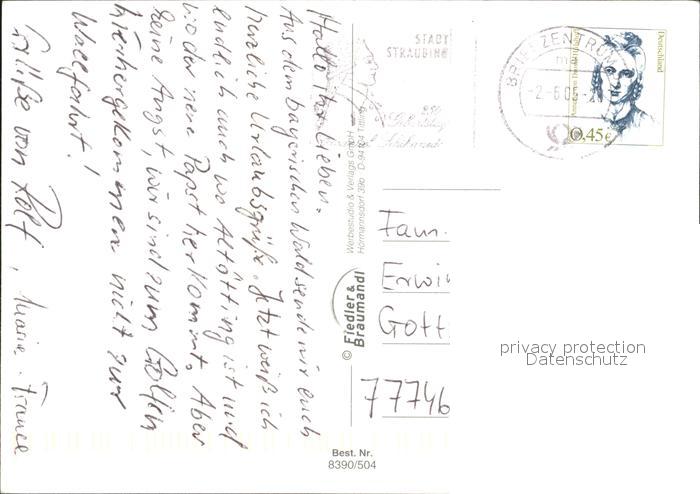 Hallo Ihr Lieben.
Aus dem bayerischen Wald senden wir euch
herzliche Urlaubsgrüße. Jetzt weiß ich
endlich auch wo Altötting ist und
wo der neue Papst herkommt. Aber
keine Angst, wir sind zum Golfen
hierhergekommen nicht zur
Wallfahrt!
Grüße von Rolf, Marie-France
STADT
STRAUBING
BRIEFZENTRUM
-2.-6.05-21
Deutschland
0,45€
Werbestudio & Verlags GmbH
Hörmannsdorf 39b D-94104 Tittling
© Fiedler &
Braumandl
Fam.
Erwi
Gott
77746
privacy protection
Datenschutz
Best. Nr.
8390/504